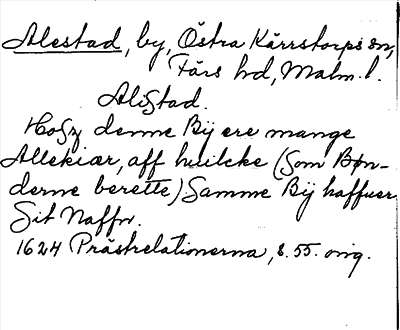 Alestad, by, Östra Kärrstorps sn,
Färs hd, Malm. l.
Aliſtad.
Hoſz denne Bÿ ere mange
Allekiær, aff huilcke (Som Bøn-
derne berette) Samme Bÿ haffuer
Sit Naffn.
1624 Prästrelationerna, s. 55. orig.